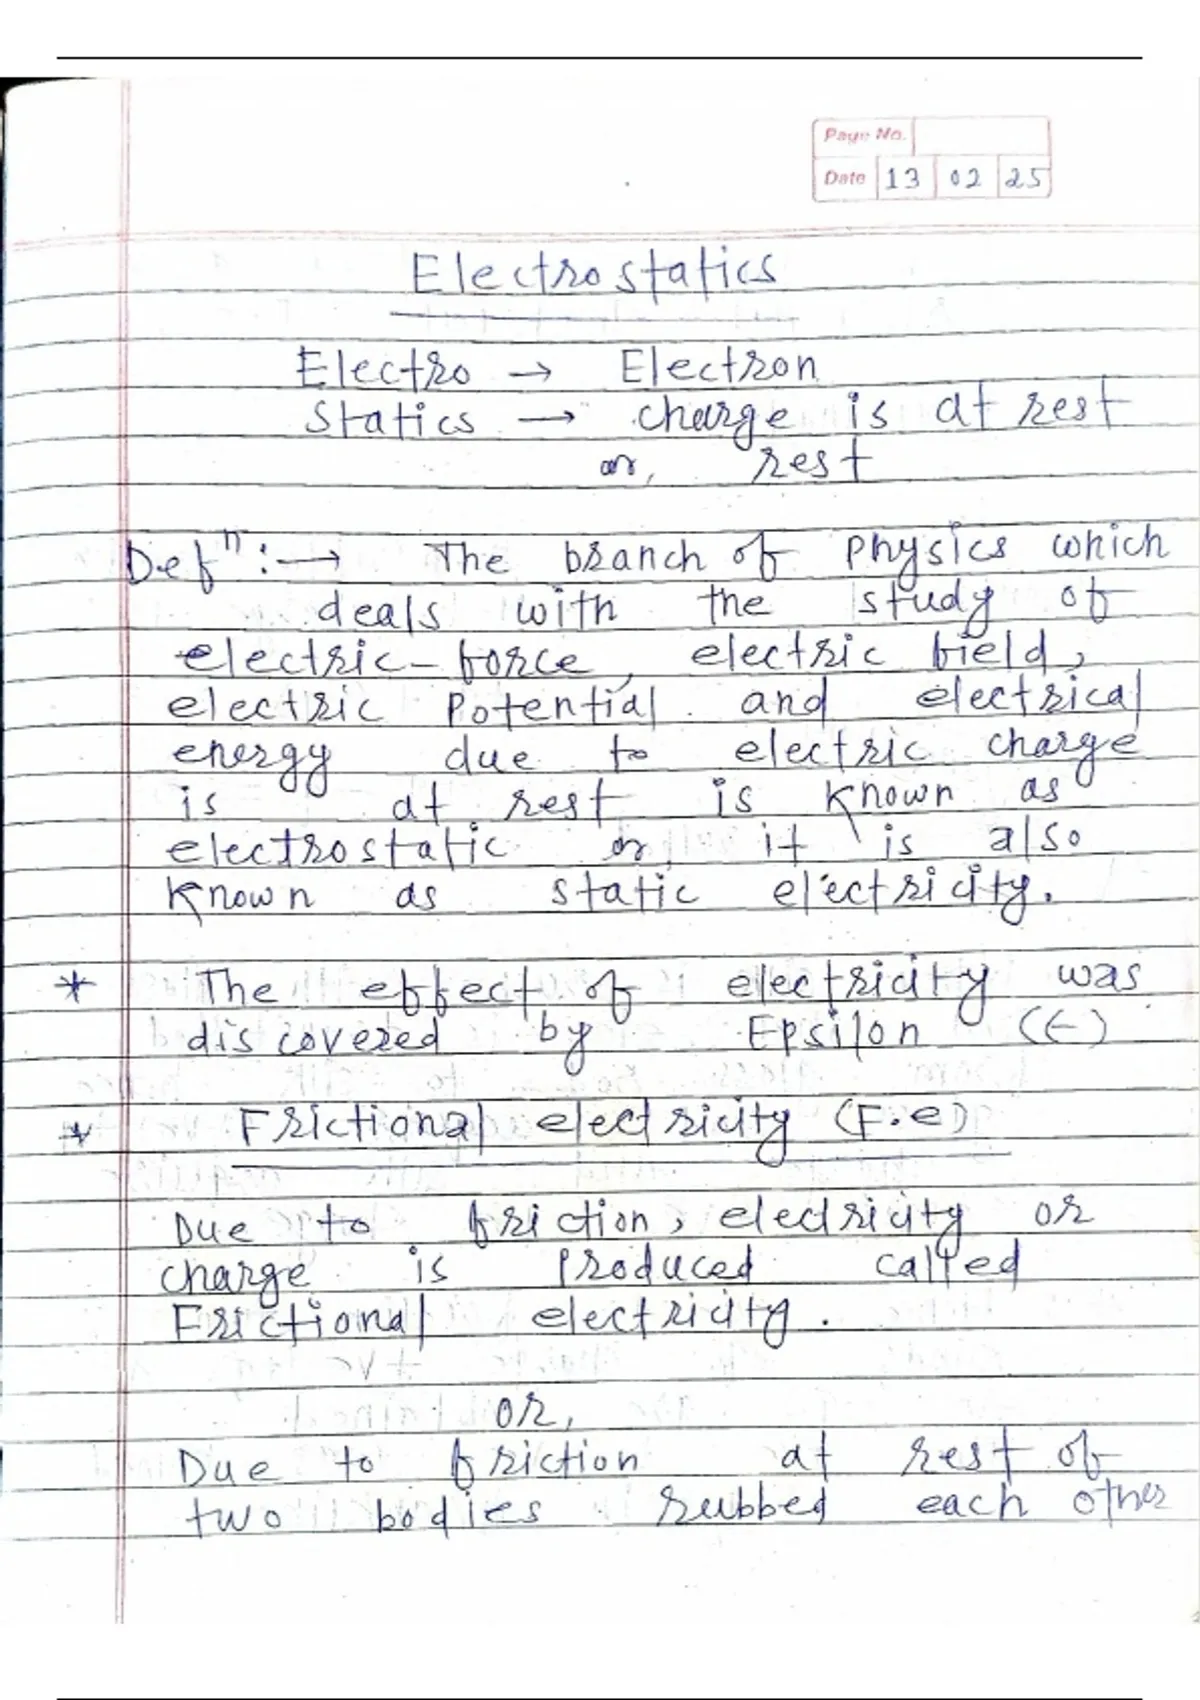 Page No.
Date 13 02 25
Electrostatics
Electro → Electron
Statics → charge is at rest
or, rest
Defⁿ :→ The branch of Physics which
deals with the study of
electric-force, electric field,
electric Potential and electrical
energy due to electric charge
is at rest is known as
electrostatic or, it is also
known as static electricity.
* The effect of electricity was
discovered by Epsilon (E)
* Frictional electricity (F.e)
Due to friction, electricity or
charge is Produced called
Frictional electricity.
or,
Due to friction at rest of
two bodies rubbed each other